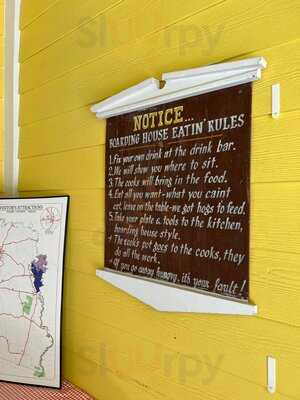 NOTICE...
BOARDING HOUSE EATIN' RULES
1. Fix your own drink at the drink bar.
2. We will show you where to sit.
3. The cooks will bring in the food.
4. Eat all you want - what you caint
eat, leave on the table - we got hogs to feed.
5. Take your plate & tools to the kitchen,
boarding house style.
The cooks pot goes to the cooks, they
do all the work.
If you go away hungry, it's your fault!
Sirved
Sirved